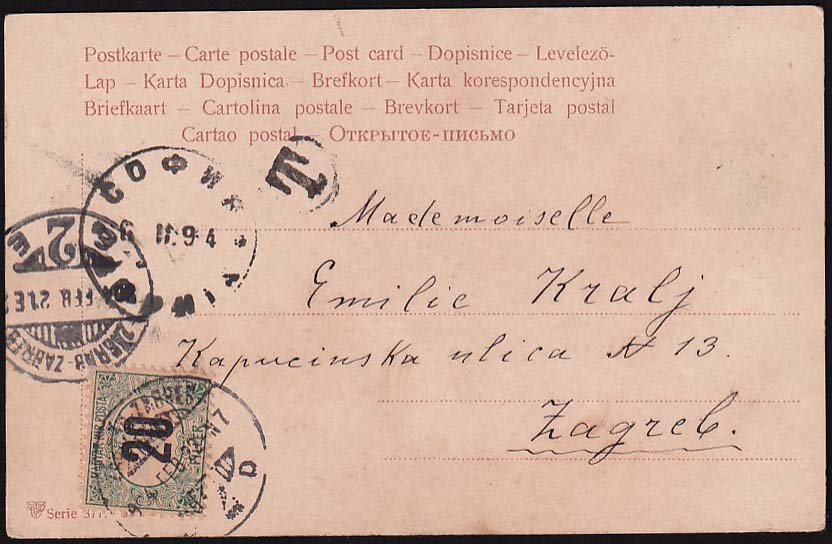 Postkarte – Carte postale – Post card – Dopisnice – Levelezö-
Lap – Karta Dopisnica – Brefkort – Karta korespondencyjna
Briefkaart – Cartolina postale – Brevkort – Tarjeta postal
Cartao postal – Открытое-письмо
СОФИЯ
T
II.9 4
2
ZAGREB - ZÁGRÁB
Mademoiselle
Emilie Kralj
Kapucinska ulica N 13.
Zagreb.
20
Serie